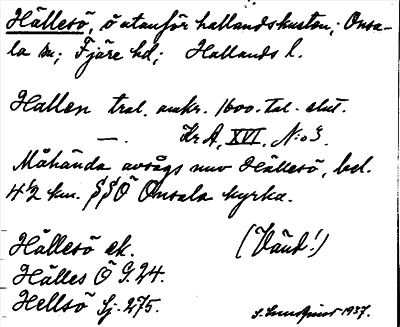 Hällesö, ö utanför hallandskusten; Onsa-
la sn; Fjäre hd; Hallands l.
Hallen tral. omkr. 1600-tal. slut.
—.— Kr A, XVI, N:o 3.
Måhända avsågs nuv Hällesö, bel.
4½ km. SSÖ Onsala kyrka.
Hällesö ek. (Vänd!)
Hälles Ö G. 24.
Hellsö Sj. 275.
S. Lundqvist 1937.